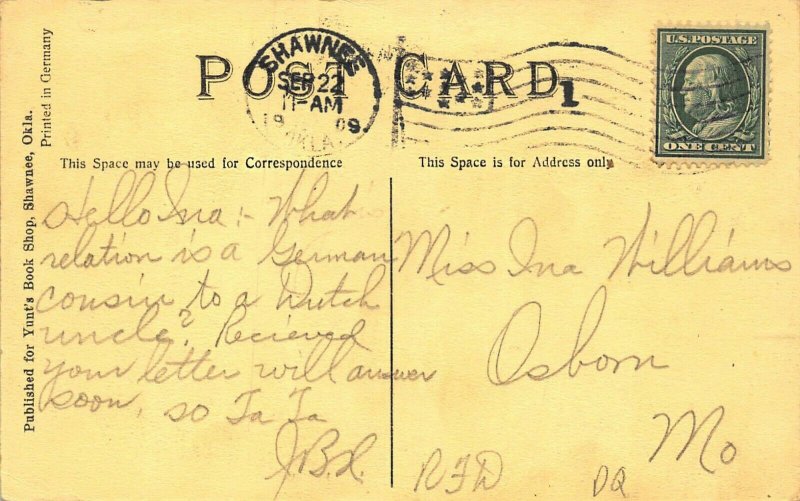 Published for Yunt's Book Shop, Shawnee, Okla.
Printed in Germany
POST CARD
SHAWNEE
SEP 22
11-AM
1909
OKLA.
1
U.S. POSTAGE
ONE CENT
This Space may be used for Correspondence
This Space is for Address only
Hello Ina :- What
relation is a German
cousin to a Dutch
uncle? Recieved
your letter will answer
soon, so Ta Ta
J.B.L.
Miss Ina Williams
Osborn
Mo
RFD
DQ